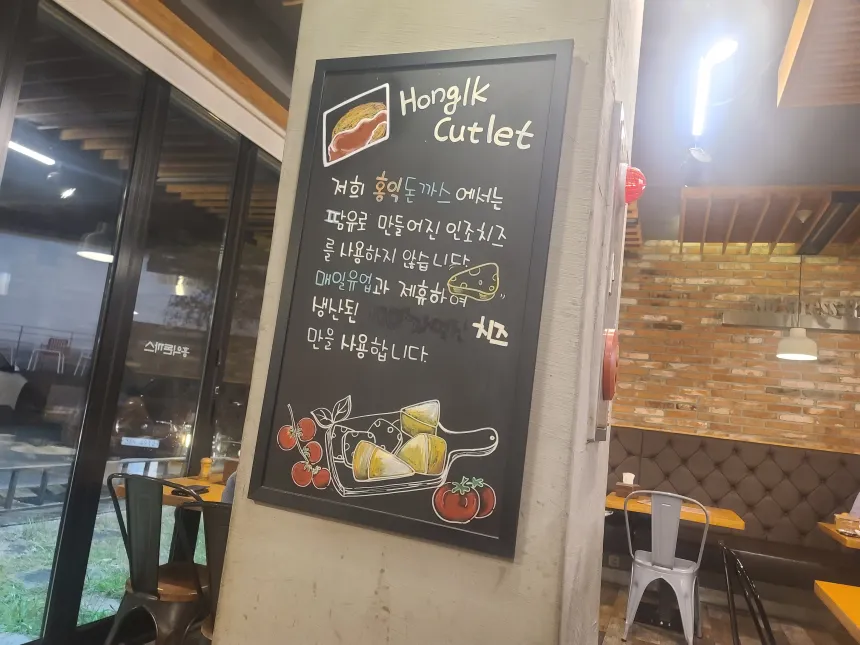 HongIk
Cutlet
저희 홍익돈까스 에서는
팜유로 만들어진 인조치즈
를 사용하지 않습니다
매일유업과 제휴하여
냉난된 치즈
만을 사용합니다.
홍익돈까스